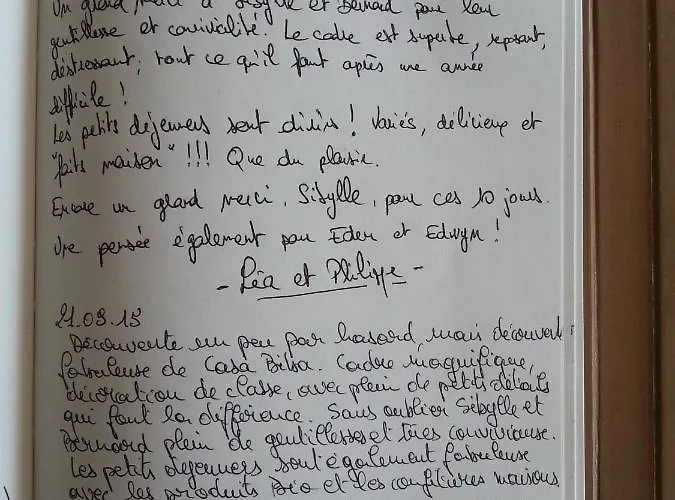 Un grand merci à Sibylle et Bernard pour leur
gentillesse et convivialité. Le cadre est superbe, reposant,
déstressant; tout ce qu'il faut après une année
difficile !
Les petits déjeuners sont divins ! Variés, délicieux et
"faits maison" !!! Que du plaisir.
Encore un grand merci, Sibylle, pour ces 10 jours.
Une pensée également pour Eder et Edwyn !
- Léa et Philippe -
21.08.15
Découverte un peu par hasard, mais découverte
fabuleuse de Casa Bilsa. Cadre magnifique,
décoration de classe, avec plein de petits détails
qui font la différence. Sans oublier Sibylle et
Bernard plein de gentillesses et très conviviause.
Les petits dejeuners sont également fabuleuse
avec les produits Bio et les confitures maisons